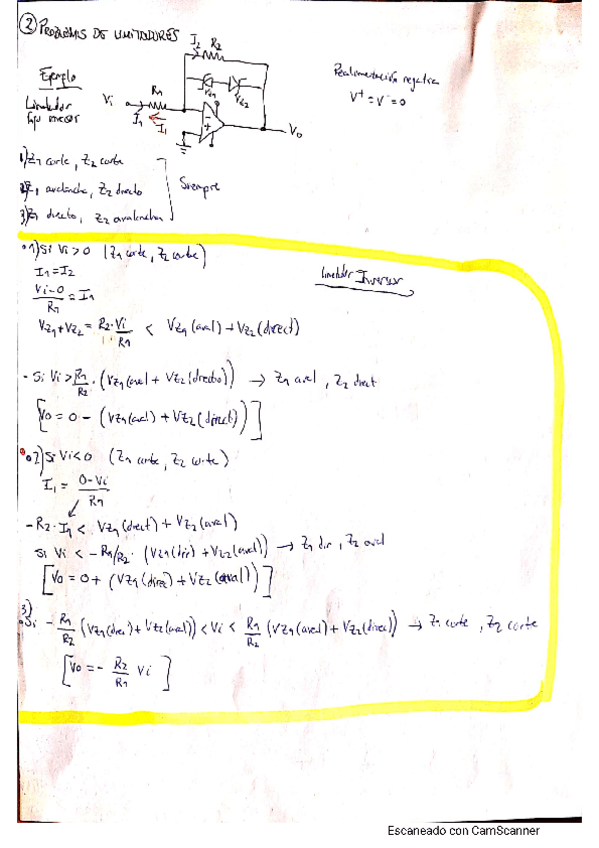 ② PROBLEMAS DE LIMITADORES
I2 R2
Ejemplo
Limitador
Vi R1 I1 I1
Vz1 Vz2
Vo
Realimentación negativa
V+ = V- = 0
1) Z1 corte, Z2 corte
2) Z1 avalancha, Z2 directo
3) Z1 directo, Z2 avalancha
Siempre
1) Si Vi > 0 (Z1 corte, Z2 corte)
Limitador Inversor
I1 = I2
Vi-0/R1 = I1
Vz1 + Vz2 = R2·Vi/R1 < Vz1(aval) + Vz2(direct)
- Si Vi > R1/R2 · (Vz1(aval + Vz2(directo)) → Z1 aval, Z2 direct
[Vo = 0 - (Vz1(aval) + Vz2(direct)]
2) Si Vi < 0 (Z1 corte, Z2 corte)
I1 = 0-Vi/R1
- R2·I1 < Vz1(direct) + Vz2(aval)
Si Vi < - R1/R2 · (Vz1(dir) + Vz2(aval)) → Z1 dir, Z2 aval
[Vo = 0 + (Vz1(direc) + Vz2(aval))]
3)
Si - R1/R2 (Vz1(direc) + Vz2(aval)) < Vi < R1/R2 (Vz1(aval) + Vz2(direc)) → Z1 corte, Z2 corte
[Vo = - R2/R1 Vi]
Escaneado con CamScanner